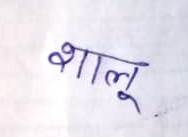 शालू